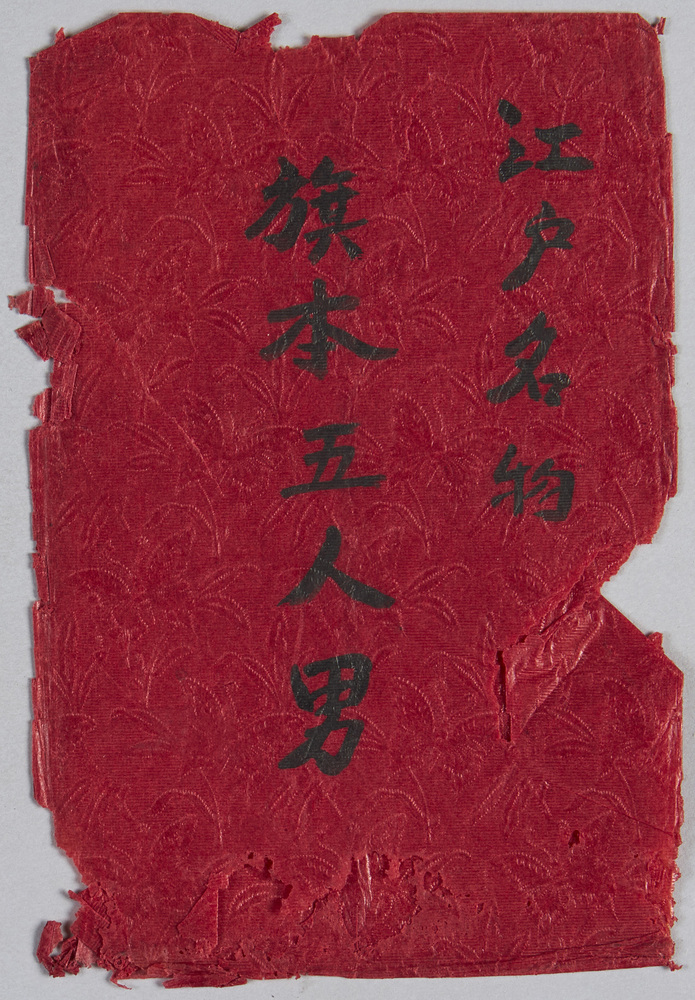 江戸名物
旗本五人男